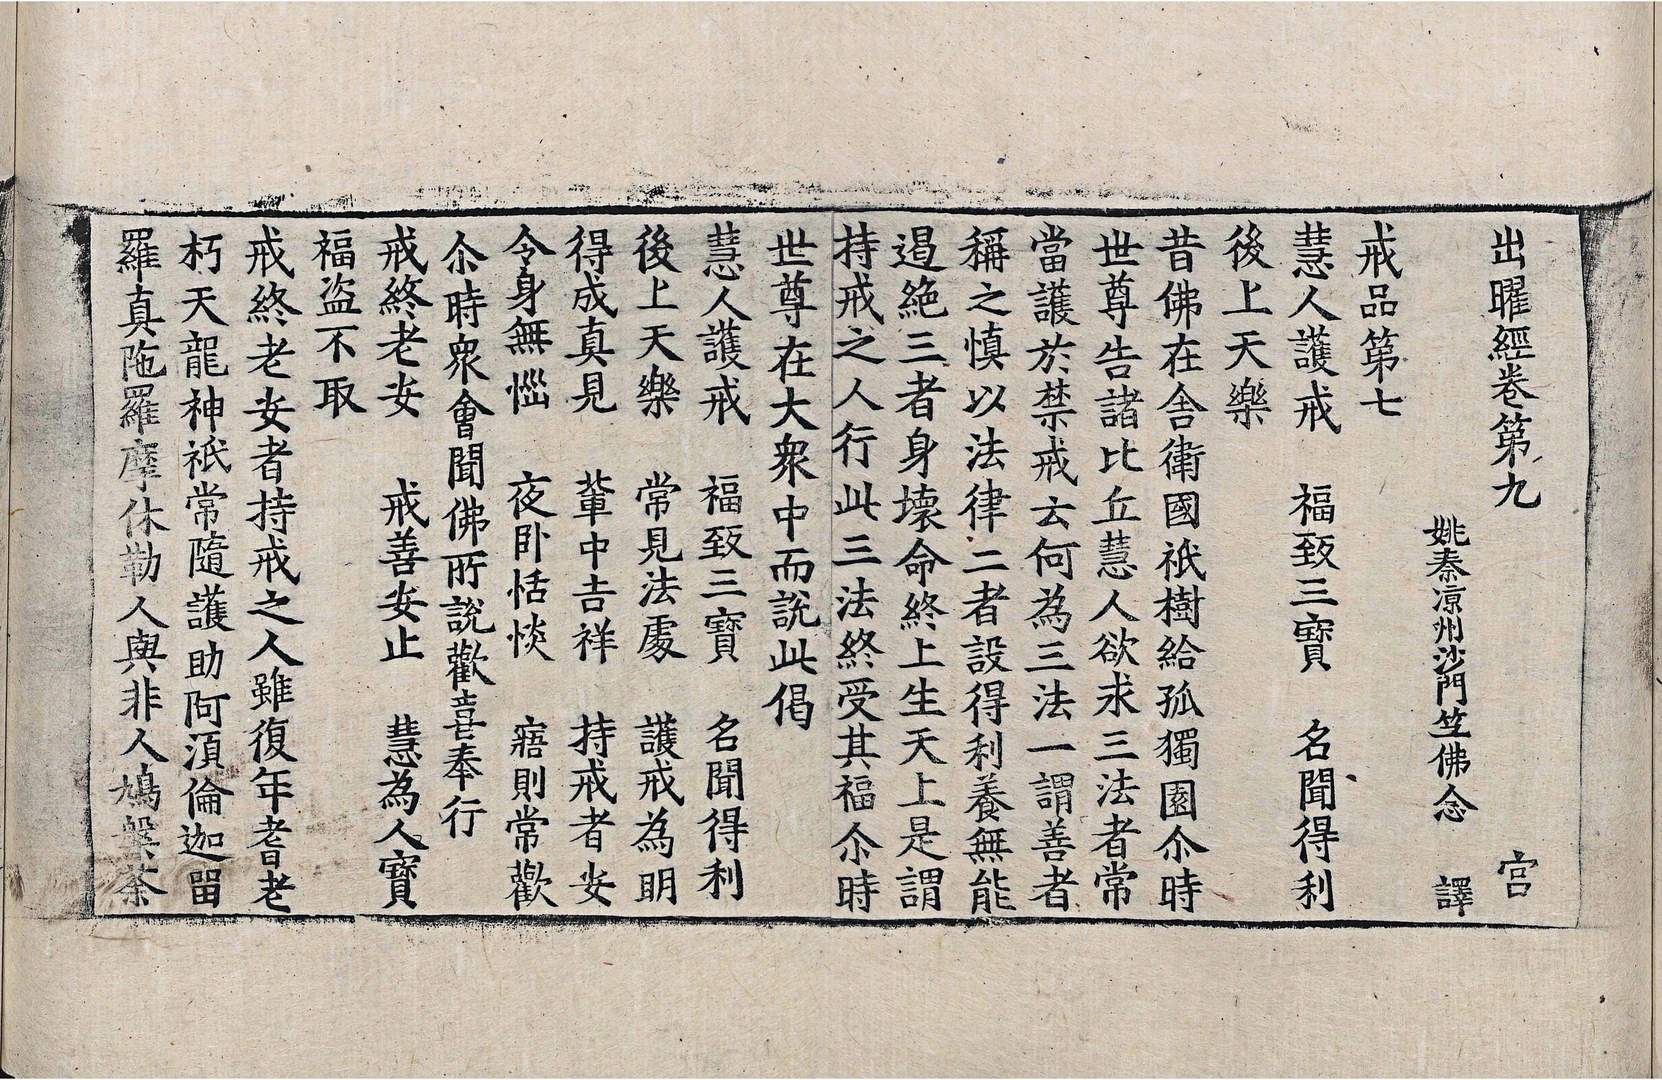 出曜經卷第九　宮
姚秦凉州沙門笁佛念　譯
戒品第七
慧人護戒　福致三寶　名聞得利
後上天樂
昔佛在舍衛國祇樹給孤獨園尒時
世尊告諸比丘慧人欲求三法者常
當護於禁戒云何為三法一謂善者
稱之慎以法律二者設得利養無能
遏絶三者身壞命終上生天上是謂
持戒之人行此三法終受其福尒時
世尊在大衆中而說此偈
慧人護戒　福致三寶　名聞得利
後上天樂　常見法處　護戒為明
得成真見　輩中吉祥　持戒者安
令身無惱　夜卧恬惔　寤則常歡
尒時衆會聞佛所說歡喜奉行
戒終老安　戒善安止　慧為人寶
福盗不取
戒終老安者持戒之人雖復年耆老
朽天龍神祇常隨護助阿須倫迦留
羅真陁羅摩休勒人與非人鳩槃荼